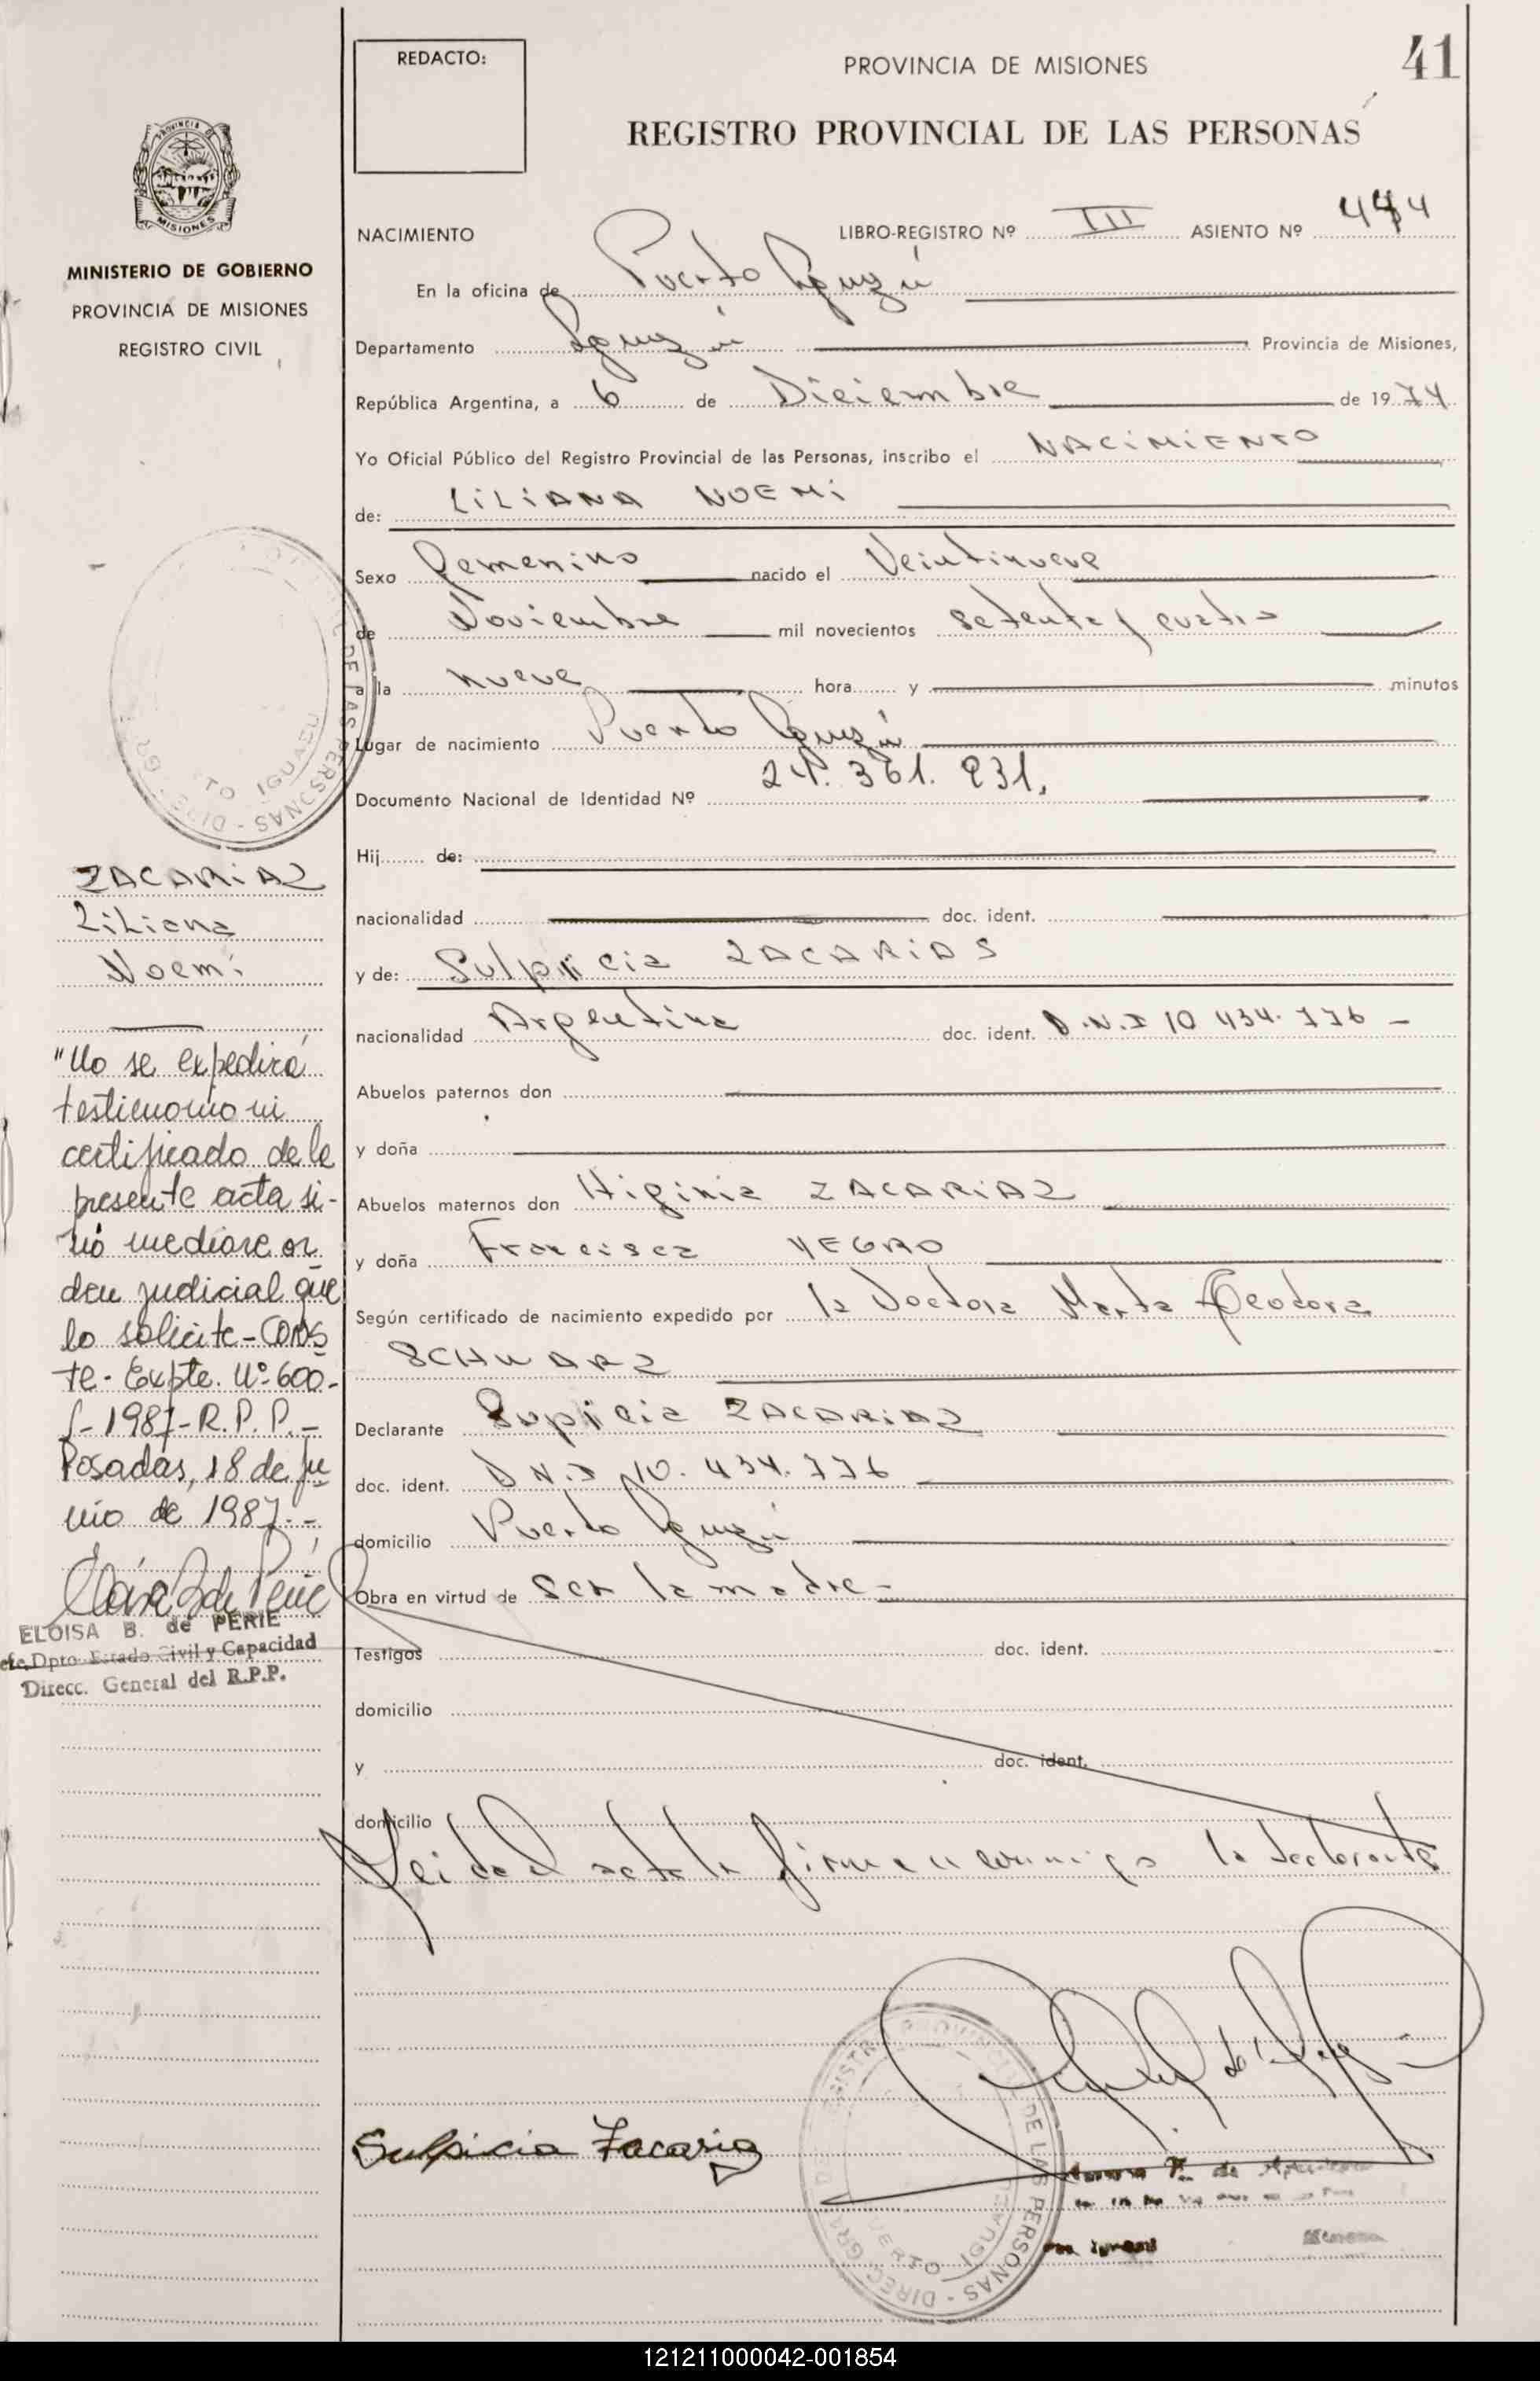 REDACTO:
PROVINCIA DE MISIONES
41
REGISTRO PROVINCIAL DE LAS PERSONAS
PROVINCIA DE
MISIONES
MINISTERIO DE GOBIERNO
PROVINCIA DE MISIONES
REGISTRO CIVIL
NACIMIENTO LIBRO-REGISTRO Nº III ASIENTO Nº 444
En la oficina de Puerto Iguazú
Departamento Iguazú Provincia de Misiones,
República Argentina, a 6 de Diciembre de 1974
Yo Oficial Público del Registro Provincial de las Personas, inscribo el NACIMIENTO
de: LILIANA NOEMI
Sexo Femenino nacido el Veintinueve
de Noviembre mil novecientos setenta y cuatro
a la nueve hora y minutos
Lugar de nacimiento Puerto Iguazú
Documento Nacional de Identidad Nº 24.361.831.
Hij de:
nacionalidad doc. ident.
y de: Sulpicia ZACARIAS
nacionalidad Argentina doc. ident. D.N.I 10 434.776 -
Abuelos paternos don
y doña
Abuelos maternos don Higinia ZACARIAZ
y doña Francisca YEGRO
Según certificado de nacimiento expedido por la Doctora Marta Teodora
SCHWARZ
Declarante Supicia ZACARIAZ
doc. ident. D N.I 10.434.776
domicilio Puerto Iguazú
Obra en virtud de ser la madre-
Testigos doc. ident.
domicilio
y doc. ident.
domicilio
Leida el acta la firma conmigo la declarante
ZACARIAZ
Liliana
Noemi
"No se expedirá
testimonio ni
certificado de la
presente acta si-
nó mediare or
den judicial que
lo solicite-CONS
te- Expte. Nº 600-
S-1987-R.P.P.-
Posadas, 18 de ju
nio de 1987.-
ELOISA B. de PERIE
Jefe Dpto. Estado Civil y Capacidad
Direcc. General del R.P.P.
Sulpicia Zacaria
DE LAS PERSONAS - DIREC. GRAL.
PUERTO IGUAZU
121211000042-001854